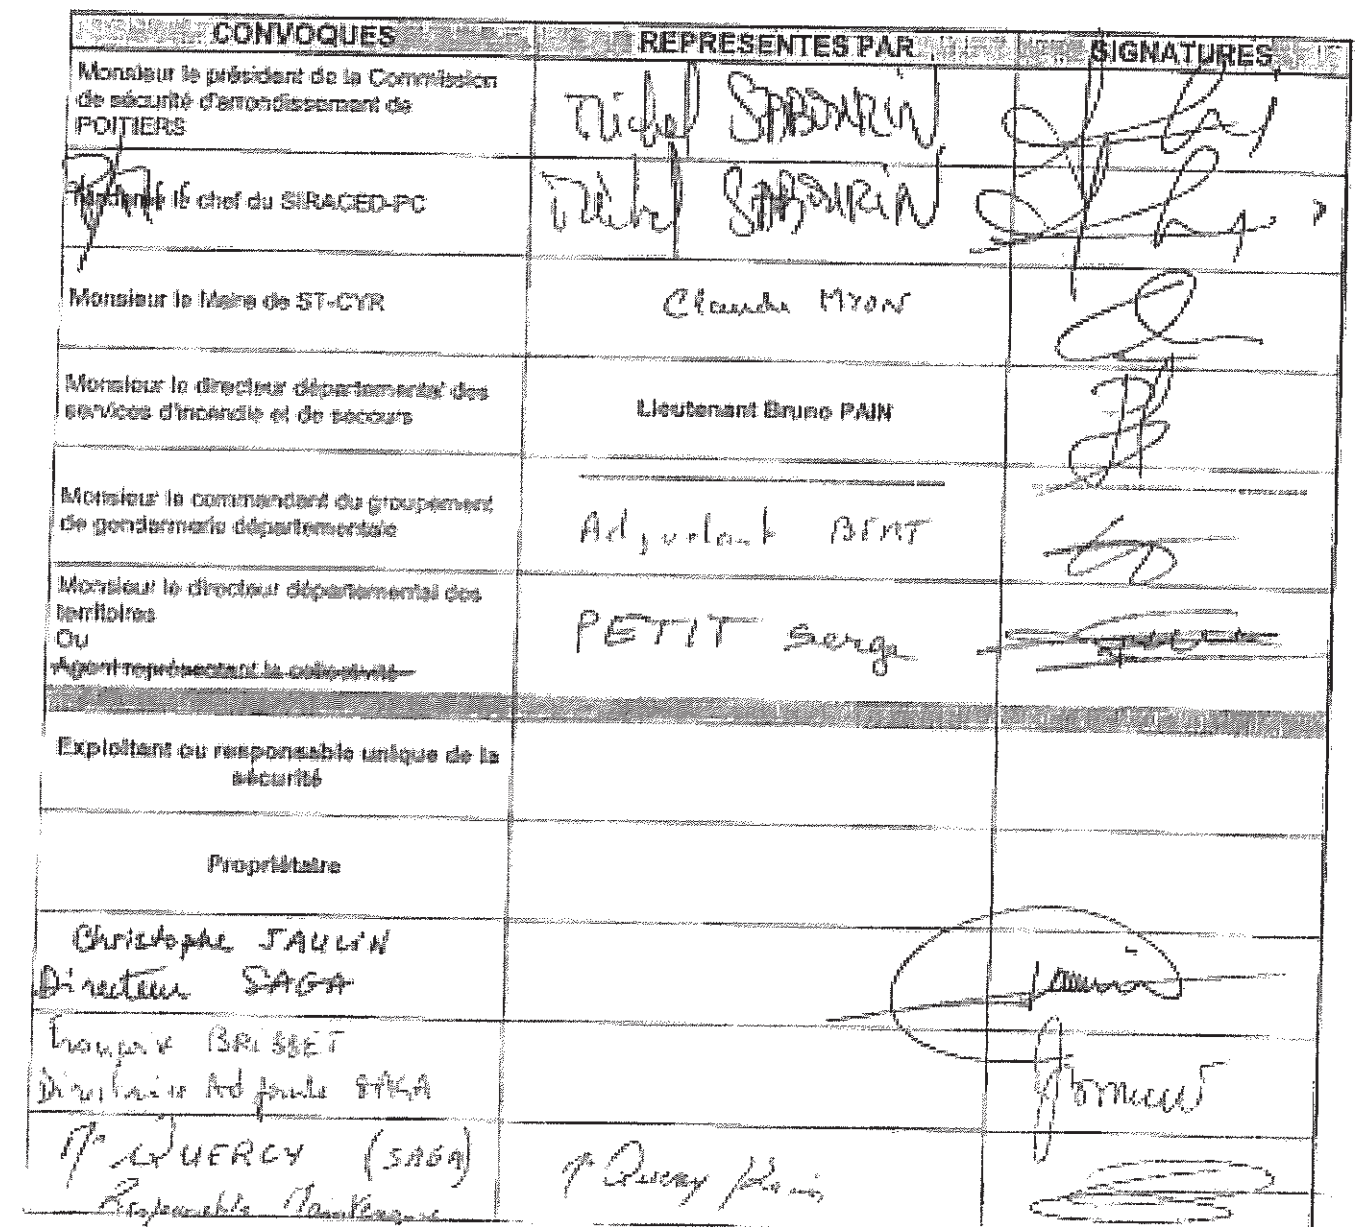 CONVOQUES
REPRESENTES PAR
SIGNATURES
Monsieur le président de la Commission
de sécurité d'arrondissement de
POITIERS
Michel SABOURIN
le chef du SIRACED-PC
Michel SABOURIN
Monsieur le Maire de ST-CYR
Claude MYON
Monsieur le directeur départemental des
services d'incendie et de secours
Lieutenant Bruno PAIN
Monsieur le commandant du groupement
de gendarmerie départementale
Adjudant
Monsieur le directeur départemental des
territoires
Ou
Agent représentant la collectivité
PETIT Serge
Exploitant ou responsable unique de la
sécurité
Propriétaire
Christophe JAULIN
Directeur SAGA
BRISSET
SAGA
Mr QUERCY (SAGA)
Responsable Maintenance
Mr Quercy